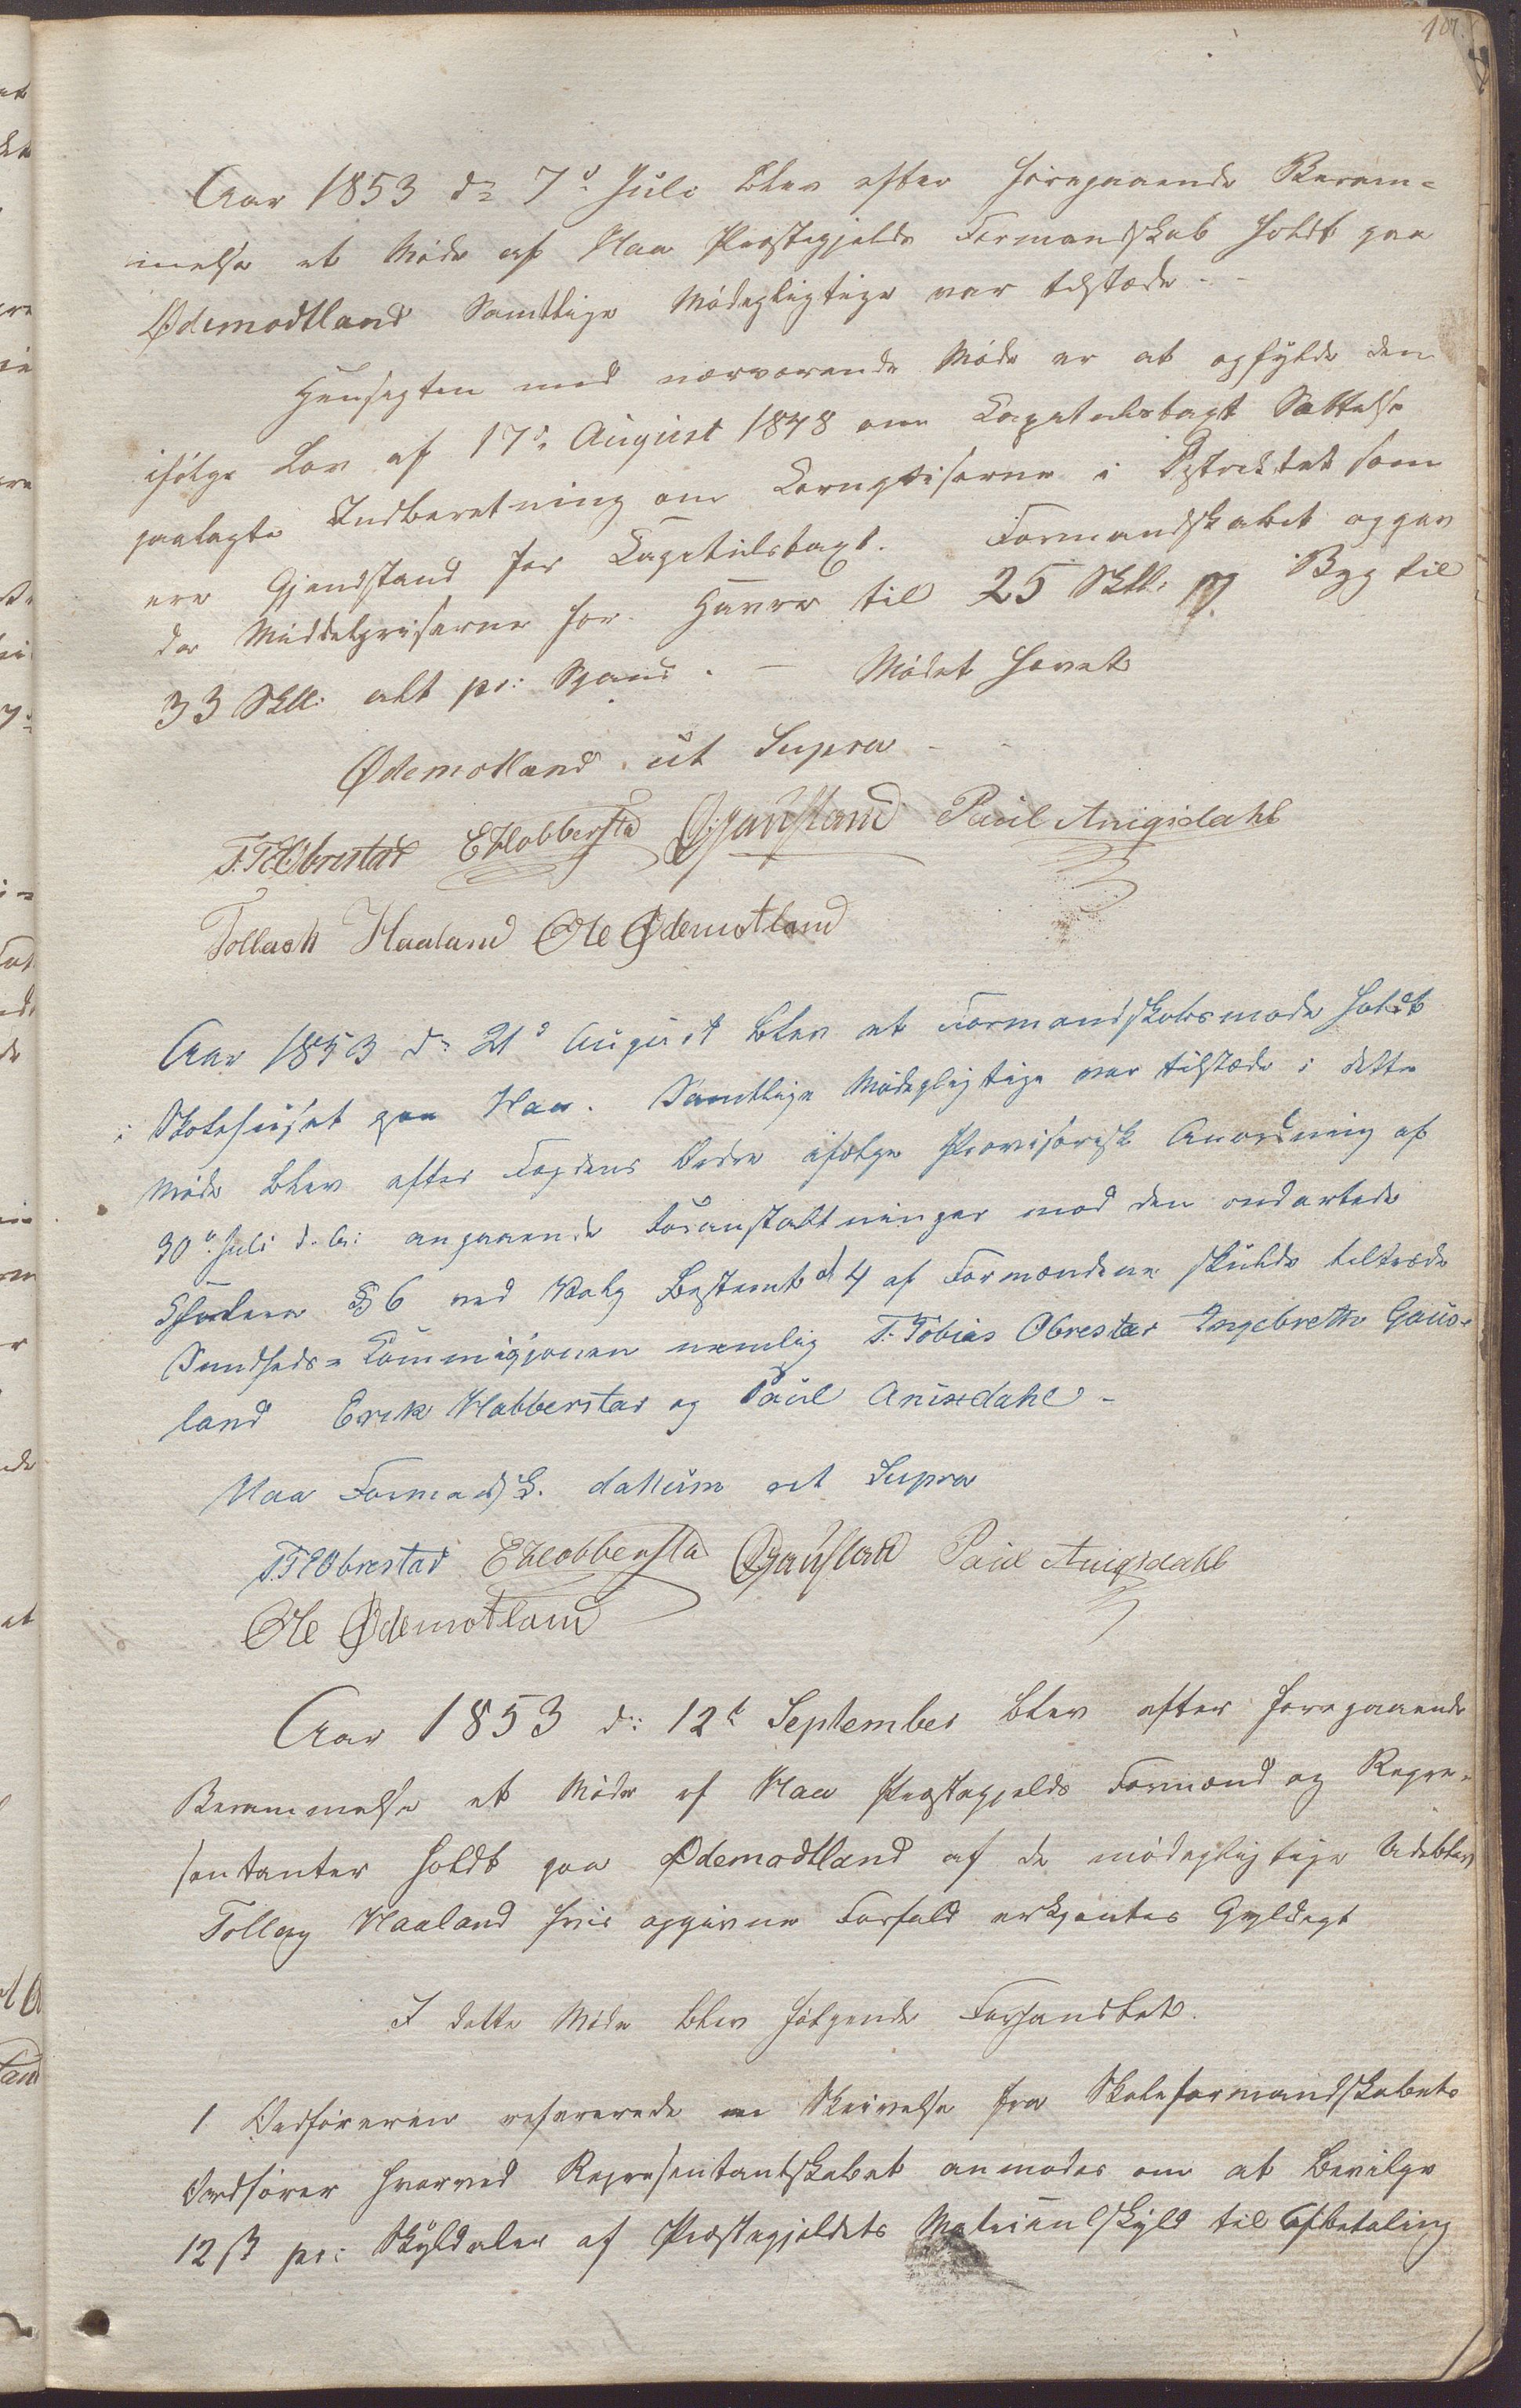 107.
Aar 1853 d: 7de Juli blev efter foregaaende Beram-
melse et Møde af Haa Præstegjelds Formandskab holdt paa
Ødemodtland Samtlige Mødepligtige var tilstæde --
Hensigten med nærværende Møde er at opfylde den
ifølge Lov af 17de August 1848 om Capitelstaxt Sættelse
paalagte Indberetning om Kornpriserne i Distriktet som
ere Gjendstand for Capitelstaxt. Formandskabet opgav
da Middelpriserne for Havre til 25 Skl: og Byg til
33 Skl: alt pr: Spand. - Mødet hævet
Ødemotland ut Supra --
T. T. Obrestad E Habbersta O. Gausland Paul Auigsdahl
Tollack Haaland Ole Ødemotland
Aar 1853 d: 21de August blev et Formandskabsmøde holdt
i Skolehuset paa Haa. Samtlige Mødepligtige var tilstæde i dette
Møde blev efter Fogdens Ordre ifølge Provisorisk Anordning af
30te Juli d. A: angaaende Foranstaltninger mod den ondartede
Cholera § 6 ved Valg Bestemt at 4 af Formændene skulde tiltræde
Sundheds-Commisjonen nemlig T. Tobias Obrestad Ingebreth Gaus-
land Erik Habberstad og Paul Auisdahl -
Haa Formandsk. datum ut Supra
T. T. Obrestad E Habbersta O Gausland Paul Auigsdahl
Ole Ødemotland
Aar 1853 d: 12te September blev efter foregaaende
Berammelse et Møde af Haa Præstegjelds Formænd og Repræ-
sentanter holdt paa Ødemodtland af de mødepligtige Udeblev
Tollag Haaland hvis opgivne Forfald erkjentes Gyldigt
I dette Møde blev følgende Forhandlet.
1 Ordføreren refererede en Skrivelse fra Skoleformandskabets
Ordfører hvorved Repræsentantskabet anmodes om at bevilge
12 ß pr: Skylddaler af Præstegjeldets Matriculskyld til Afbetaling